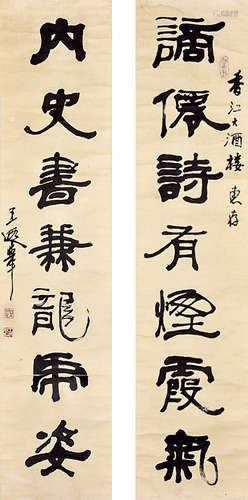 香江大酒樓惠存
謫僊詩有煙霞氣
內史書兼龍虎姿
王遐舉